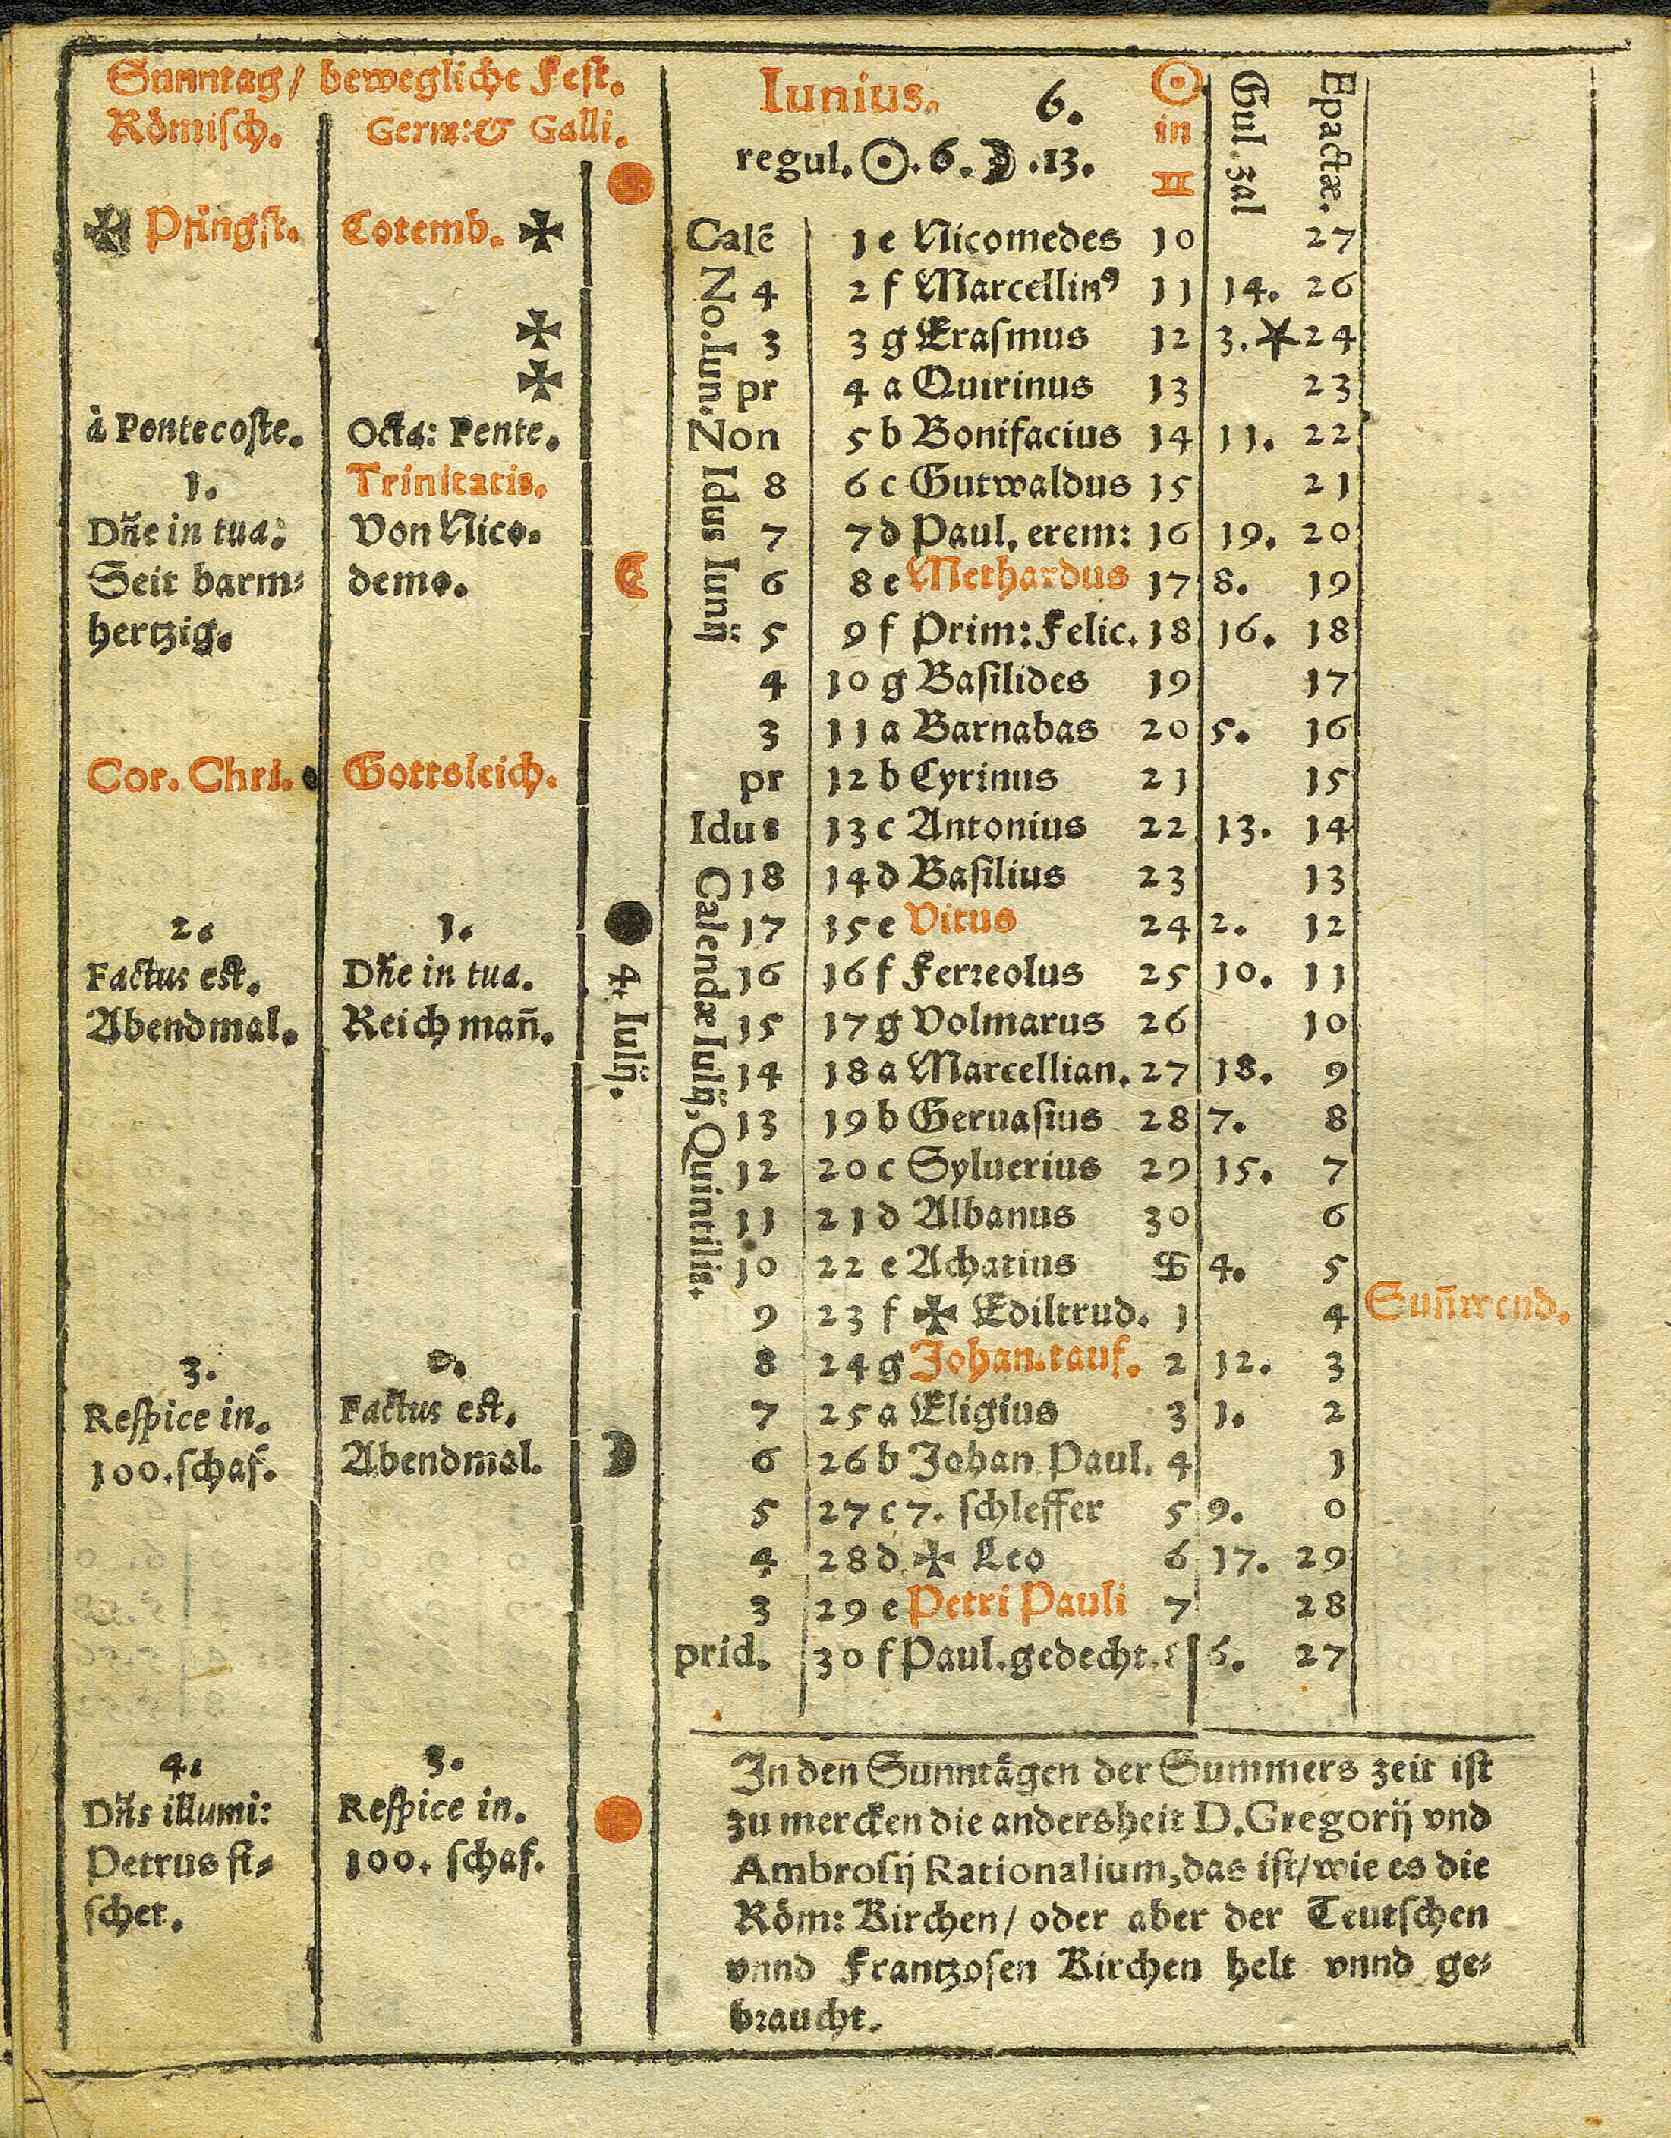 Sunntag/ bewegliche Fest.
Römisch. Germ:& Galli.
Iunius. 6.
regul. ☉.6.☽.13.
☉ in ♊
Gul. zal
Epactæ.
✠ Pfingst. Cotemb. ✠
✠
✠
à Pentecoste. Octa: Pente.
1. Trinitatis.
Dñe in tua: Von Nico-
Seit barm- demo.
hertzig.
Cor. Chri. Gottsleich.
2. 1.
Factus est. Dñe in tua.
Abendmal. Reich mañ.
3.
Respice in. Factus est.
100.schaf. Abendmal.
4. 3.
Dñs illumi: Respice in.
Petrus fi- 100. schaf.
schet.
☾
4. Iulij.
☽
No. Iun.
Idus Iunij
Calendæ Iulij, Quintilis.
Calē 1 e Nicomedes 10 27
4 2 f Marcellinꝰ 11 14. 26
3 3 g Erasmus 12 3.* 24
pr 4 a Quirinus 13 23
Non 5 b Bonifacius 14 11. 22
8 6 c Gutwaldus 15 21
7 7 d Paul. erem: 16 19. 20
6 8 e Methardus 17 8. 19
5 9 f Prim: Felic. 18 16. 18
4 10 g Basilides 19 17
3 11 a Barnabas 20 5. 16
pr 12 b Cyrinus 21 15
Idus 13 c Antonius 22 13. 14
18 14 d Basilius 23 13
17 15 e Vitus 24 2. 12
16 16 f Ferreolus 25 10. 11
15 17 g Volmarus 26 10
14 18 a Marcellian. 27 18. 9
13 19 b Geruasius 28 7. 8
12 20 c Syluerius 29 15. 7
11 21 d Albanus 30 6
10 22 e Achatius 4. 5
9 23 f ✠ Ediltrud. 1 4 Suñwend.
8 24 g Johan.tauf. 2 12. 3
7 25 a Eligius 3 1. 2
6 26 b Johan Paul. 4 1
5 27 c 7. schleffer 5 9. 0
4 28 d ✠ Leo 6 17. 29
3 29 e Petri Pauli 7 28
prid. 30 f Paul.gedecht. 6. 27
In den Sunntägen der Summers zeit ist
zu mercken die andersheit D. Gregorij vnd
Ambrosij Rationalium, das ist/ wie es die
Röm: Kirchen/ oder aber der Teutschen
vnnd Frantzosen Kirchen helt vnnd ge-
braucht.